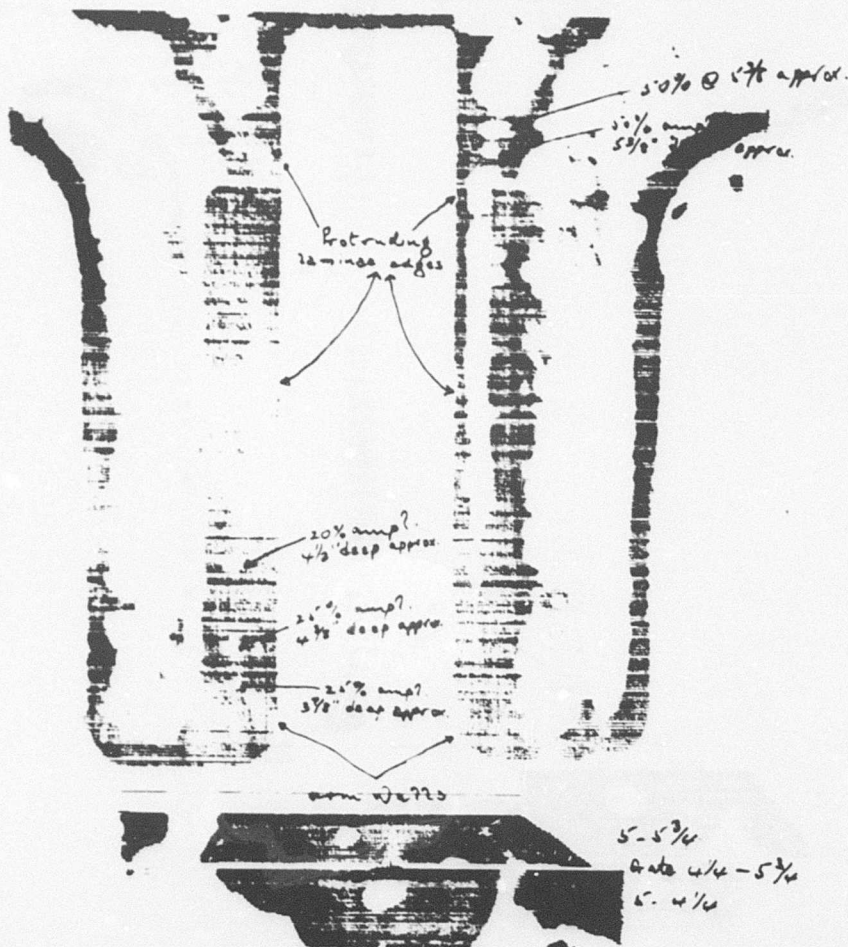 50% @ 5⅜ approx.
50% amp?
5⅜" approx.
Protruding
laminae edges
20% amp?
4½" deep approx.
25% amp?
4⅜" deep approx.
25% amp?
3⅞" deep approx.
arm
5-5¾
Gate 4¼-5¾
5-4¼